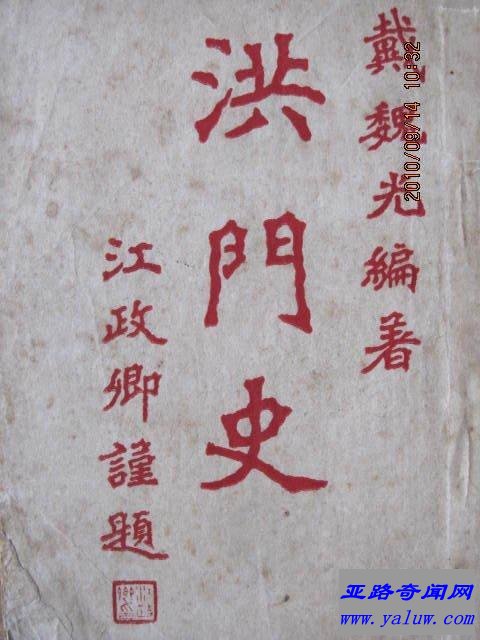 戴魏光編著
洪門史
江政卿謹題
2010/09/14 10:32
亚路奇闻网
www.yaluw.com